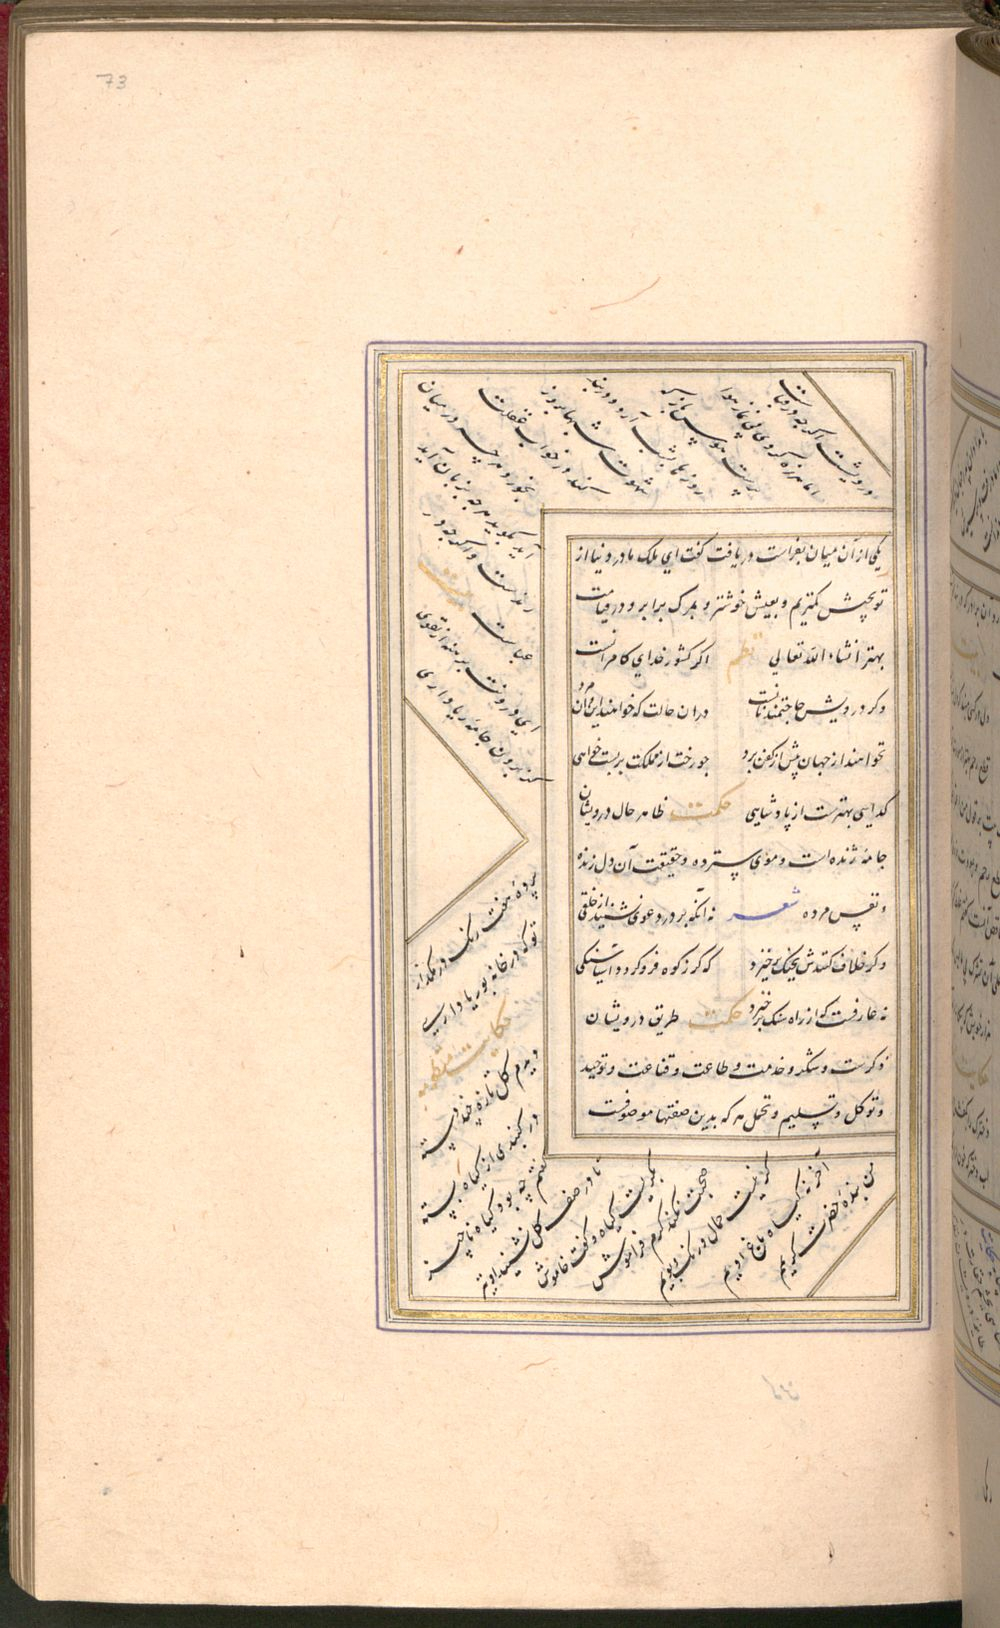 73
یکی از آن میان بفراست دریافت گفت ای ملک ما در دنیا از
تو بجیش کمتریم و بعیش خوشتر و بمرگ برابر و در قیامت
بهتر انشاء الله تعالی نظم اگر کشور خدای کامرانست
وگر درویش حاجتمند نانست در ان حالت که خواهند این و آن مرد
نخواهند از جهان پیش از کفن برد چو رخت از مملکت بربست خواهی
گدایی بهترست از پادشاهی حکمت ظاهر حال درویشان
جامه ژنده است و موی سترده و حقیقت آن دل زنده
و نفس مرده شعر نه آنکه بر در دعوی نشیند از خلقی
وگر خلاف کنندش بجنگ برخیزد که گر ز کوه فرو گردد آسیا سنگی
نه عارفست که از راه سنک برخیزد حکمت طریق درویشان
ذکرست و شکر و خدمت و طاعت و قناعت و توحید
و توکل و تسلیم و تحمل هر که بدین صفتها موصوفست
درویشست اگرچه در قباست
اما هرزه گردی بی نماز هوا
پرست هوس باز که
روزها بشب آرد در بند
شهوت و شبها بروز
کند در خواب غفلت
بخورد هرچه در میان
آید بگوید هرچه بزبان آید
رندست و اگرچه در
عباست
ای درونت برهنه از تقوی
کز برون جامه ریا داری
پرده هفت رنگ در مگذار
تو که در خانه بوریا داری
حکایت منظومه
دیدم گل تازه چند دسته
بر گنبدی از گیاه بسته
گفتم چه بود گیاه ناچیز
تا در صف گل نشیند او نیز
بگریست گیاه و گفت خاموش
صحبت نکند کرم فراموش
گر نیست جمال و رنگ و بویم
آخر نه گیاه باغ اویم
من بنده حضرت کریمم